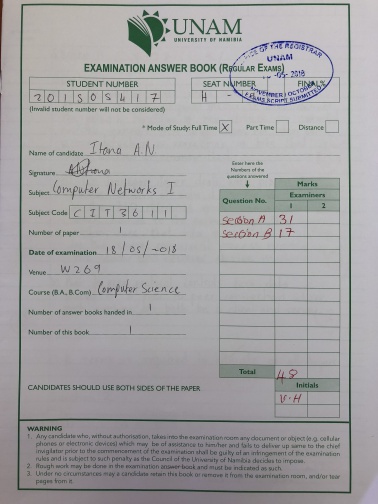 UNAM
UNIVERSITY OF NAMIBIA
EXAMINATION ANSWER BOOK (REGULAR EXAMS)
OFFICE OF THE REGISTRAR
UNAM
-05- 2018
NOVEMBER / OCTOBER
EXAMS SCRIPT SUBMITTED
STUDENT NUMBER
SEAT NUMBER
FINAL%
201305417
H -
(Invalid student number will not be considered)
* Mode of Study: Full Time X Part Time Distance
Name of candidate Itana A.N
Signature
Enter here the Numbers of the questions answered
Subject Computer Networks I
Subject Code CIT3611
Number of paper 1
Date of examination 18/05/-018
Venue W269
Course (B.A., B.Com) Computer Science
Number of answer books handed in 1
Number of this book 1
Marks
Question No.
Examiners
1 2
Section A 31
Section B 17
Total 48
Initials
V.H
CANDIDATES SHOULD USE BOTH SIDES OF THE PAPER
WARNING
1. Any candidate who, without authorisation, takes into the examination room any document or object (e.g. cellular
phones or electronic devices) which may be of assistance to him/her and fails to deliver up same to the chief
invigilator prior to the commencement of the examination shall be guilty of an infringement of the examination
rules and is subject to such penalty as the Council of the University of Namibia decides to impose.
2. Rough work may be done in the examination answer-book and must be indicated as such.
3. Under no circumstances may a candidate retain this book or remove it from the examination room, and/or tear
pages from it.